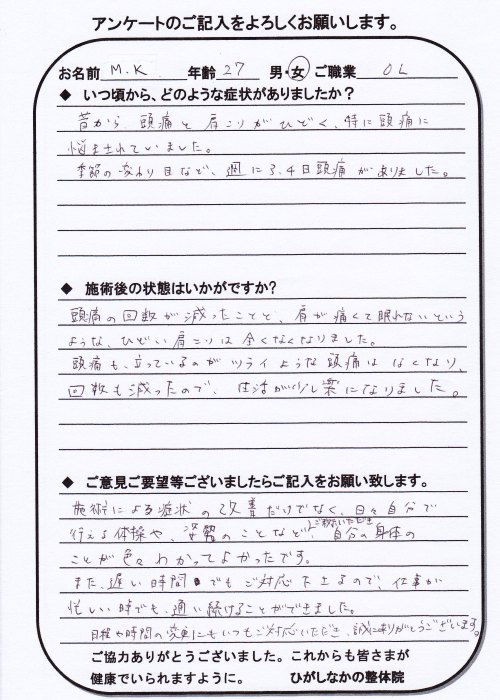 アンケートのご記入をよろしくお願いします。
お名前 M.K 年齢 27 男・女 ご職業 OL
◆ いつ頃から、どのような症状がありましたか？
昔から 頭痛と肩こりがひどく、特に頭痛に
悩まされていました。
季節の変わり目など、週に3、4日頭痛がありました。
◆ 施術後の状態はいかがですか？
頭痛の回数が減ったことと、肩が痛くて眠れないという
ような、ひどい肩こりは全くなくなりました。
頭痛も、立っているのがツライような頭痛はなくなり、
回数も減ったので、生活が少し楽になりました。
◆ ご意見ご要望等ございましたらご記入をお願い致します。
施術による症状の改善だけでなく、日々自分で
行える体操や、姿勢のことなど、ご教えいただき 自分の身体の
ことが色々わかってよかったです。
また、遅い時間でもご対応下さるので、仕事が
忙しい時でも、通い続けることができました。
日程や時間の変更にもいつもご対応いただき、誠にありがとうございます。
ご協力ありがとうございました。これからも皆さまが
健康でいられますように。 ひがしなかの整体院